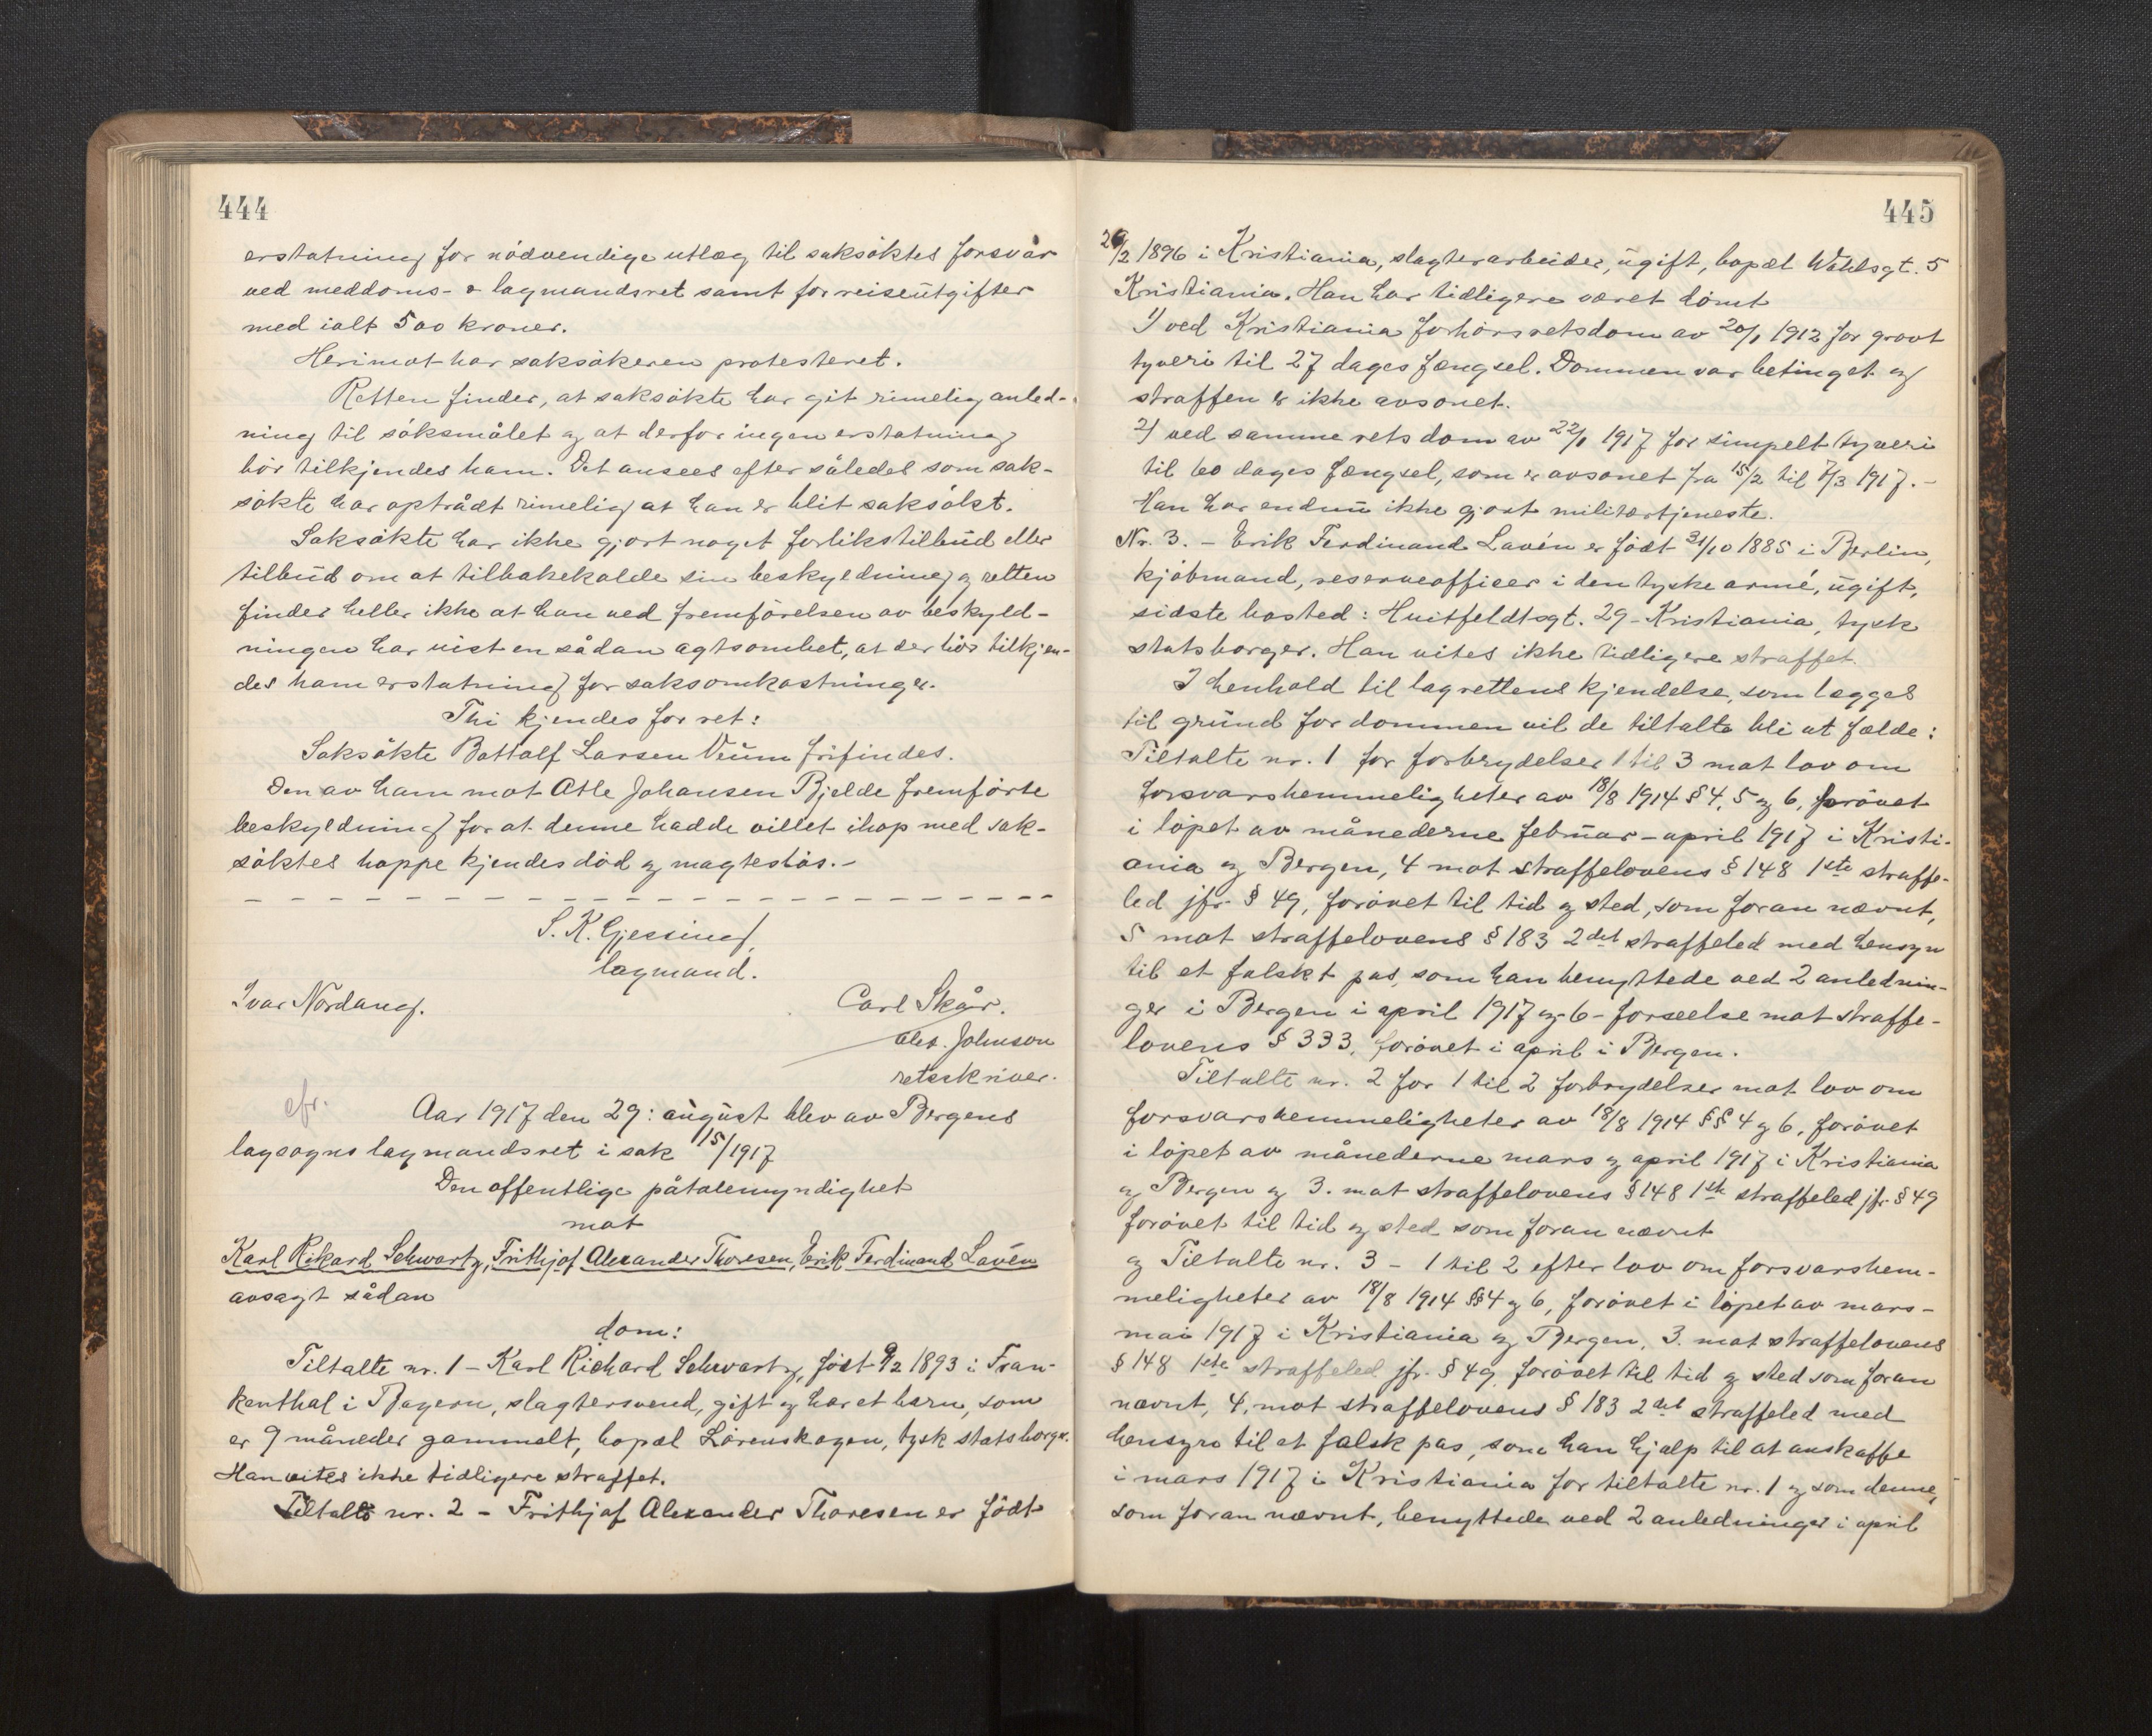 444
erstatning for nödvendige utlæg til saksöktes forsvar
ved meddoms- & lagmandsret samt for reiseutgifter
med ialt 500 kroner.
Herimot har saksökeren protesteret.
Retten finder, at saksökte har git rimelig anled-
ning til söksmålet og at derfor ingen erstatning
bör tilkjendes ham. Det ansees efter således som sak-
sökte har optrådt rimelig at han er blit saksökt.
Saksökte har ikke gjort noget forlikstilbud eller
tilbud om at tilbakekalde sin beskyldning og retten
finder heller ikke at han ved fremförelsen av beskyld-
ningen har vist en sådan agtsomhet, at der bör tilkjen-
des ham erstatning for saksomkostninger.
Thi kjendes for ret:
Saksökte Bottolf Larsen Veum frifindes.
Den av ham mot Atle Johansen Bjelde fremförte
beskyldning for at denne hadde villet ihop med sak-
söktes hoppe kjendes död og magteslös.-
S. K. Gjessing,
lagmand.
Ivar Nordang. Carl Skår.
Alex. Johnson
retsskriver.
cfr. Aar 1917 den 29: august blev av Bergens
lagsogns lagmandsret i sak 15/1917
Den offentlige påtalemyndighet
mot
Karl Rikard Schwartz, Frithjof Alexander Thoresen, Erik Ferdinand Lavén
avsagt sådan
dom:
Tiltalte nr. 1 - Karl Richard Schwartz, födt 9/2 1893 i Fran-
kenthal i Bayern, slagtersvend, gift og har et barn, som
er 9 måneder gammelt, bopæl Lörenskogen, tysk statsborger.
Han vites ikke tidligere straffet.
Tiltalte nr. 2 - Frithjof Alexander Thoresen er födt
445
26/2 1896 i Kristiania, slagterarbeider, ugift, bopæl Wahlsgt. 5
Kristiania. Han har tidligere været dömt
1) ved Kristiania forhörsretsdom av 20/1 1912 for grovt
tyveri til 27 dages fængsel. Dommen var betinget og
straffen er ikke avsonet.
2) ved samme rets dom av 22/1 1917 for simpelt tyveri
til 60 dages fængsel, som er avsonet fra 15/2 til 7/3 1917.-
Han har endnu ikke gjort militærtjeneste.
Nr. 3. - Erik Ferdinand Lavén er födt 31/10 1885 i Berlin,
kjöbmand, reserveofficer i den tyske armé, ugift,
sidste bosted: Huitfeldtsgt. 29 - Kristiania, tysk
statsborger. Han vites ikke tidligere straffet.
I henhold til lagrettens kjendelse, som lægges
til grund for dommen vil de tiltalte bli at fælde:
Tiltalte nr. 1 for forbrydelser 1 til 3 mot lov om
forsvarshemmeligheter av 18/8 1914 § 4, 5 og 6, forövet
i löpet av månederne februar - april 1917 i Kristi-
ania og Bergen, 4 mot straffelovens § 148 1ste straffe-
led jfr. § 49, forövet til tid og sted, som foran nævnt,
5 mot straffelovens § 183 2det straffeled med hensyn
til et falskt pas, som han benyttede ved 2 anlednin-
ger i Bergen i april 1917 og 6 - forseelse mot straffe-
lovens § 333, forövet i april i Bergen.
Tiltalte nr. 2 for 1 til 2 forbrydelser mot lov om
forsvarshemmeligheter av 18/8 1914 §§ 4 og 6, forövet
i löpet av månederne mars og april 1917 i Kristiania
og Bergen og 3. mot straffelovens § 148 1ste straffeled jfr. § 49
forövet til tid og sted som foran nævnt
og Tiltalte nr. 3 - 1 til 2 efter lov om forsvarshem-
meligheter av 18/8 1914 §§ 4 og 6, forövet i löpet av mars-
mai 1917 i Kristiania og Bergen, 3. mot straffelovens
§ 148 1ste straffeled jfr. § 49 forövet til tid og sted som foran
nævnt, 4. mot straffelovens § 183 2det straffeled med
hensyn til et falsk pas, som han hjalp til at anskaffe
i mars 1917 i Kristiania for tiltalte nr. 1 og som denne,
som foran nævnt, benyttede ved 2 anledninger i april